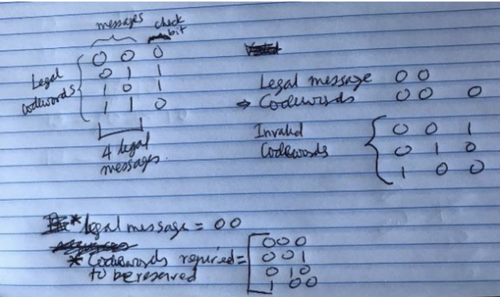 messages check
bit
0 0 0
Legal 0 1 1
Codewords 1 0 1
1 1 0
4 legal
messages.
Legal message 0 0
⇒ Codewords 0 0 0
Invalid 0 0 1
Codewords 0 1 0
1 0 0
* legal message = 0 0
* Codewords required = 000
to be reserved 001
010
1 00